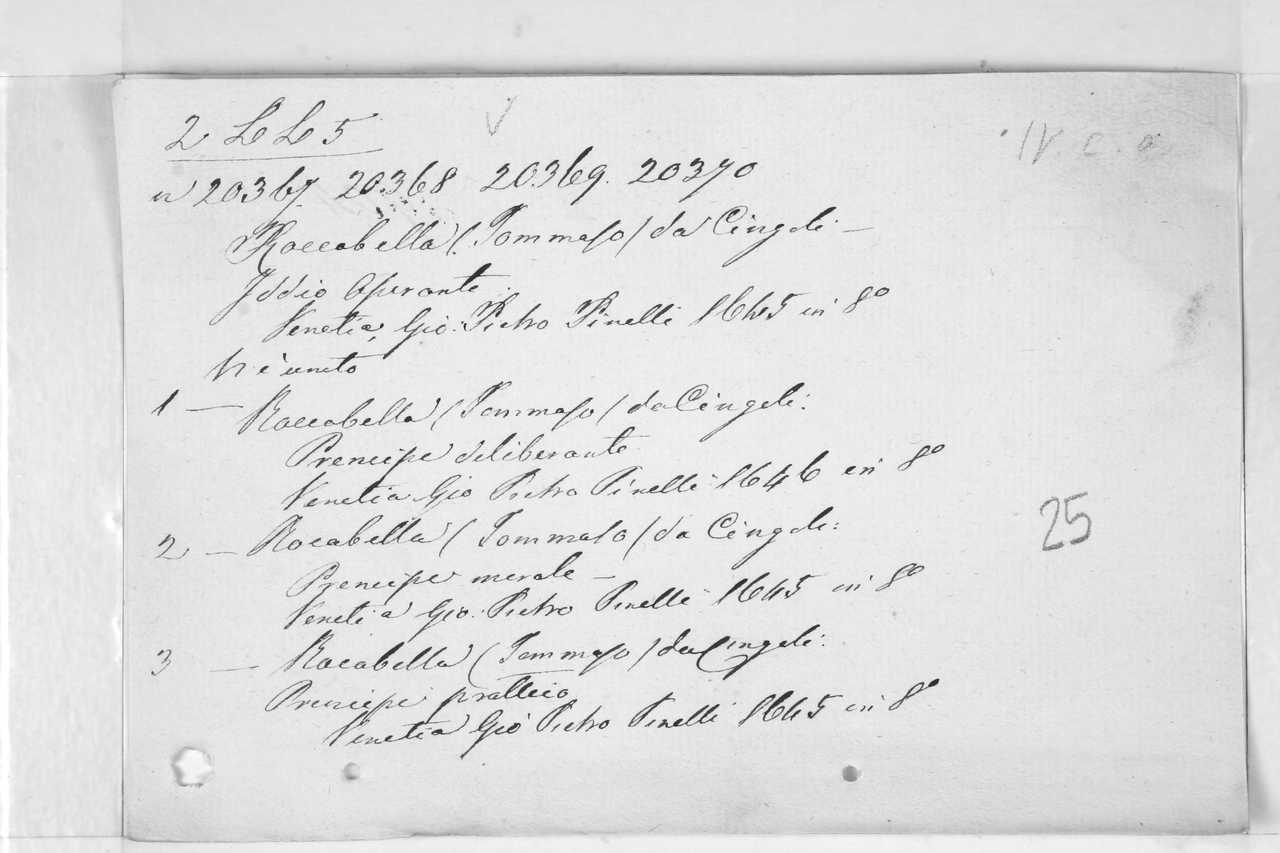 2 L L 5
IV. c. a
n 20367. 20.368 20.369. 20370
Roccabella (Tommaso) da Cingoli -
Iddio Operante.
Venetia, Gio: Pietro Pinelli 1645 in 8º
Vi è unito
1 - Roccabella (Tommaso) da Cingoli:
Prencipe deliberante
Venetia Gio Pietro Pinelli 1646 in 8º
2 - Rocabella (Tommaso) da Cingoli:
Prencipe morale -
Venetia Gio: Pietro Pinelli 1645 in 8º
25
3 - Rocabella (Tommaso) da Cingoli:
Prencipe prattico
Venetia Gio Pietro Pinelli 1645 in 8º